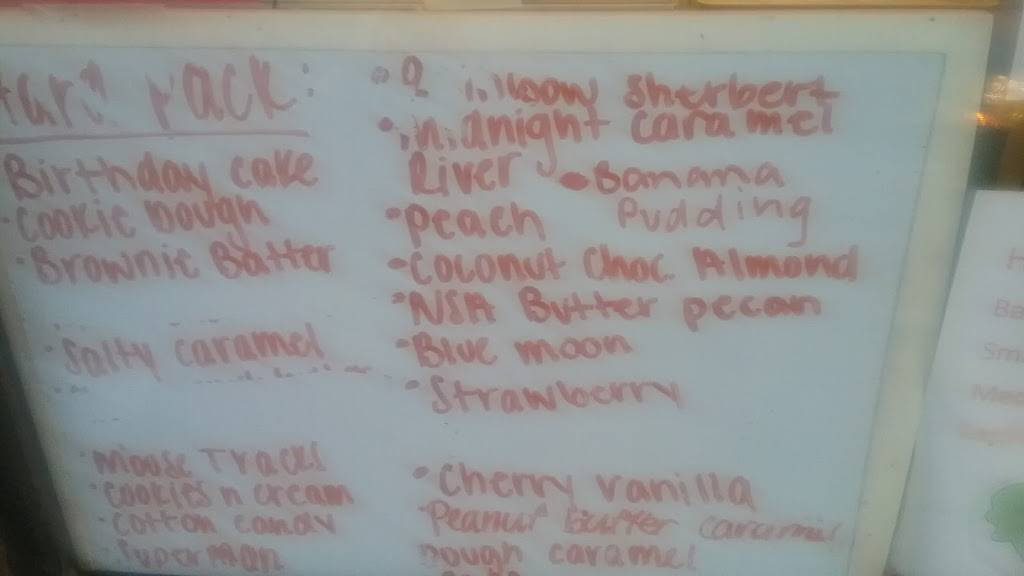 Pack:
Birthday cake
• Cookie Dough
• Brownie Batter
• Salty caramel
• Moose Tracks
• Cookies n cream
• Cotton candy
• Superman
Sherbert
• Midnight caramel
River
• Banana
Pudding
• Peach
• Coconut Choc. Almond
• NSA Butter pecan
• Blue moon
• Strawberry
• Cherry vanilla
• Peanut Butter caramel
Dough caramel